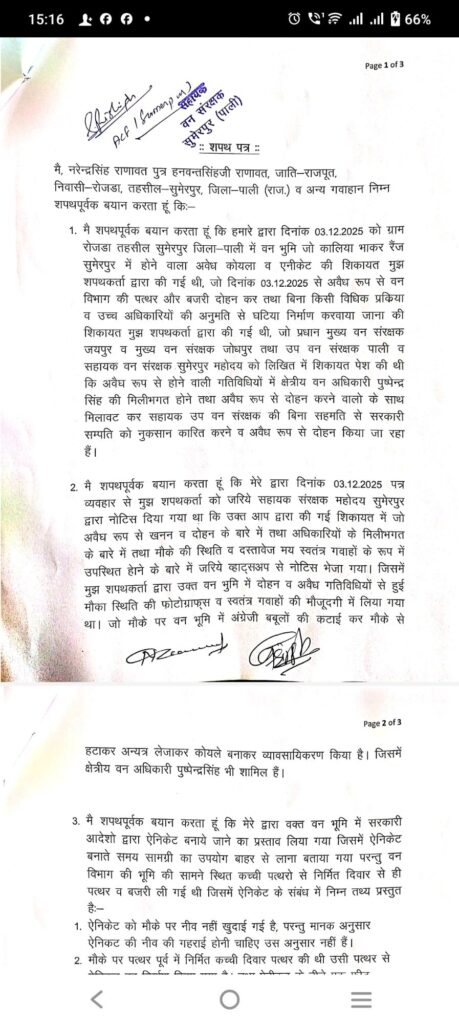 15:16
66%
Page 1 of 3
सहायक
वन संरक्षक
सुमेरपुर (पाली)
:: शपथ पत्र ::
मै, नरेन्द्रसिंह राणावत पुत्र हनवन्तसिंहजी राणावत, जाति–राजपूत,
निवासी–रोजडा, तहसील–सुमेरपुर, जिला–पाली (राज.) व अन्य गवाहान निम्न
शपथपूर्वक बयान करता हूं किः–
1. मै शपथपूर्वक बयान करता हूं कि हमारे द्वारा दिनांक 03.12.2025 को ग्राम
रोजडा तहसील सुमेरपुर जिला–पाली में वन भूमि जो कालिया भाकर रैंज
सुमेरपुर में होने वाला अवेध कोयला व एनीकेट की शिकायत मुझ
शपथकर्ता द्वारा की गई थी, जो दिनांक 03.12.2025 से अवैध रूप से वन
विभाग की पत्थर और बजरी दोहन कर तथा बिना किसी विधिक प्रकिया
व उच्च अधिकारियों की अनुमति से घटिया निर्माण करवाया जाना की
शिकायत मुझ शपथकर्ता द्वारा की गई थी, जो प्रधान मुख्य वन संरक्षक
जयपुर व मुख्य वन संरक्षक जोधपुर तथा उप वन संरक्षक पाली व
सहायक वन संरक्षक सुमेरपुर महोदय को लिखित में शिकायत पेश की थी
कि अवैध रूप से होने वाली गतिविधियों में क्षेत्रीय वन अधिकारी पुष्पेन्द्र
सिंह की मिलीभगत होने तथा अवैध रूप से दोहन करने वालो के साथ
मिलावट कर सहायक उप वन संरक्षक की बिना सहमति से सरकारी
सम्पति को नुकसान कारित करने व अवैध रूप से दोहन किया जा रहा
हैं।
2. मै शपथपूर्वक बयान करता हूं कि मेरे द्वारा दिनांक 03.12.2025 पत्र
व्यवहार से मुझ शपथकर्ता को जरिये सहायक संरक्षक महोदय सुमेरपुर
द्वारा नोटिस दिया गया था कि उक्त आप द्वारा की गई शिकायत में जो
अवैध रूप से खनन व दोहन के बारे में तथा अधिकारियों के मिलीभगत
के बारे में तथा मौके की स्थिति व दस्तावेज मय स्वतंत्र गवाहों के रूप में
उपस्थित हेाने के बारे में जरिये व्हाट्सअप से नोटिस भेजा गया। जिसमें
मुझ शपथकर्ता द्वारा उक्त वन भूमि में दोहन व अवैध गतिविधियों से हुई
मौका स्थिति की फोटोग्राफ्स व स्वतंत्र गवाहों की मौजूदगी में लिया गया
था। जो मौके पर वन भूमि में अंग्रेजी बबूलों की कटाई कर मौके से
Page 2 of 3
हटाकर अन्यत्र लेजाकर कोयले बनाकर व्यावसायिकरण किया है। जिसमें
क्षेत्रीय वन अधिकारी पुष्पेन्द्रसिंह भी शामिल हैं।
3. मै शपथपूर्वक बयान करता हूं कि मेरे द्वारा वक्त वन भूमि में सरकारी
आदेशो द्वारा ऐनिकेट बनाये जाने का प्रस्ताव लिया गया जिसमें ऐनिकेट
बनाते समय सामग्री का उपयोग बाहर से लाना बताया गया परन्तु वन
विभाग की भूमि की सामने स्थित कच्ची पत्थरो से निर्मित दिवार से ही
पत्थर व बजरी ली गई थी जिसमें ऐनिकेट के संबंध में निम्न तथ्य प्रस्तुत
हैः–
1. ऐनिकेट को मौके पर नीव नहीं खुदाई गई है, परन्तु मानक अनुसार
ऐनिकट की नीव की गहराई होनी चाहिए उस अनुसार नहीं हैं।
2. मौके पर पत्थर पूर्व में निर्मित कच्ची दिवार पत्थर की थी उसी पत्थर से